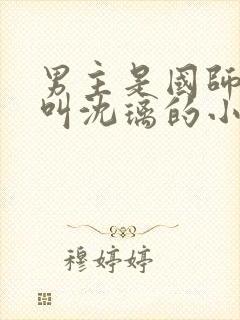 男主是國師
叫沈璃的小
穆婷婷